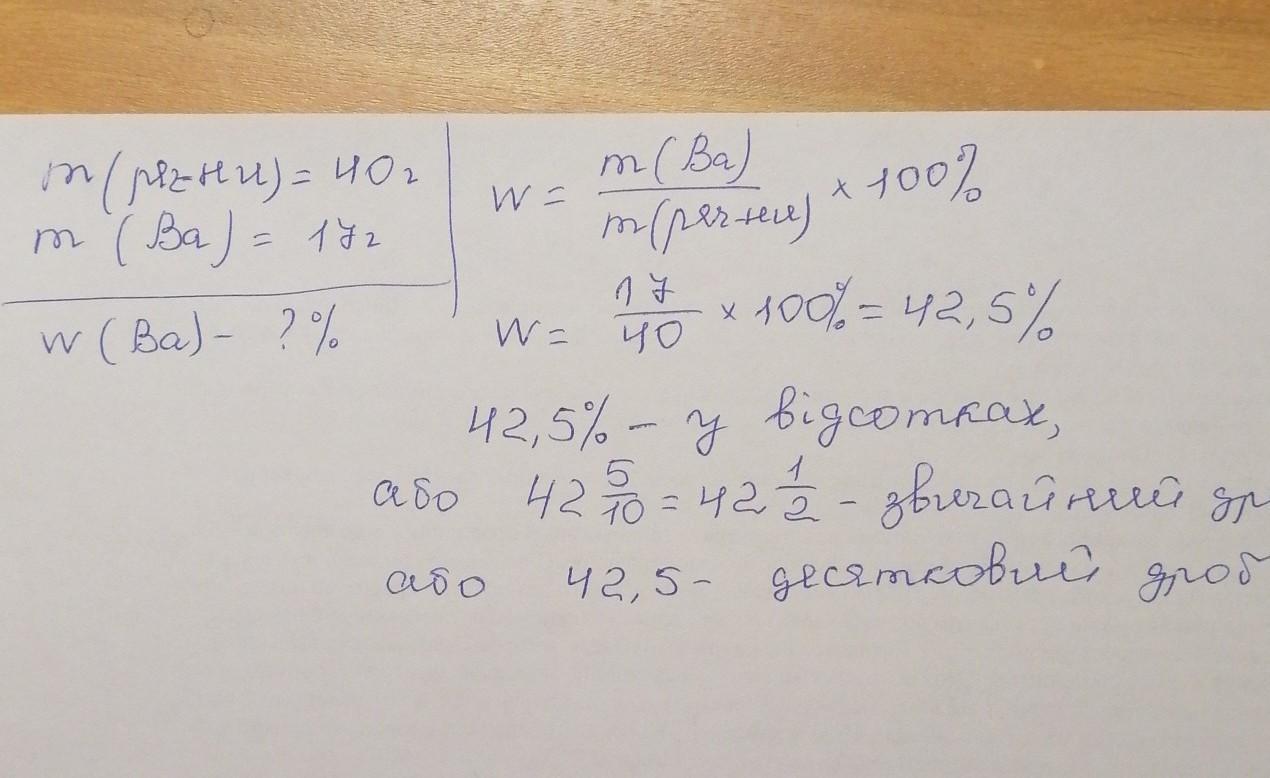 m(ряч-ни) = 40г
m (Ba) = 17г
w (Ba) - ?%
w = m(Ba) / m(ряч-ни) × 100%
w = 17/40 × 100% = 42,5%
42,5% - у відсотках,
або 42 5/10 = 42 1/2 - звичайний др
або 42,5 - десятковий дроб